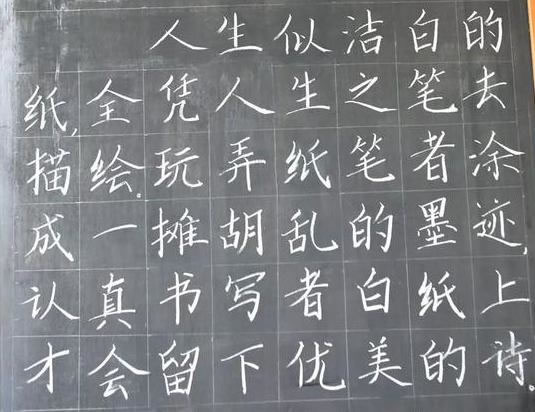 人生似洁白的
纸,全凭人生之笔去
描绘。玩弄纸笔者涂
成一摊胡乱的墨迹,
认真书写者白纸上
才会留下优美的诗。